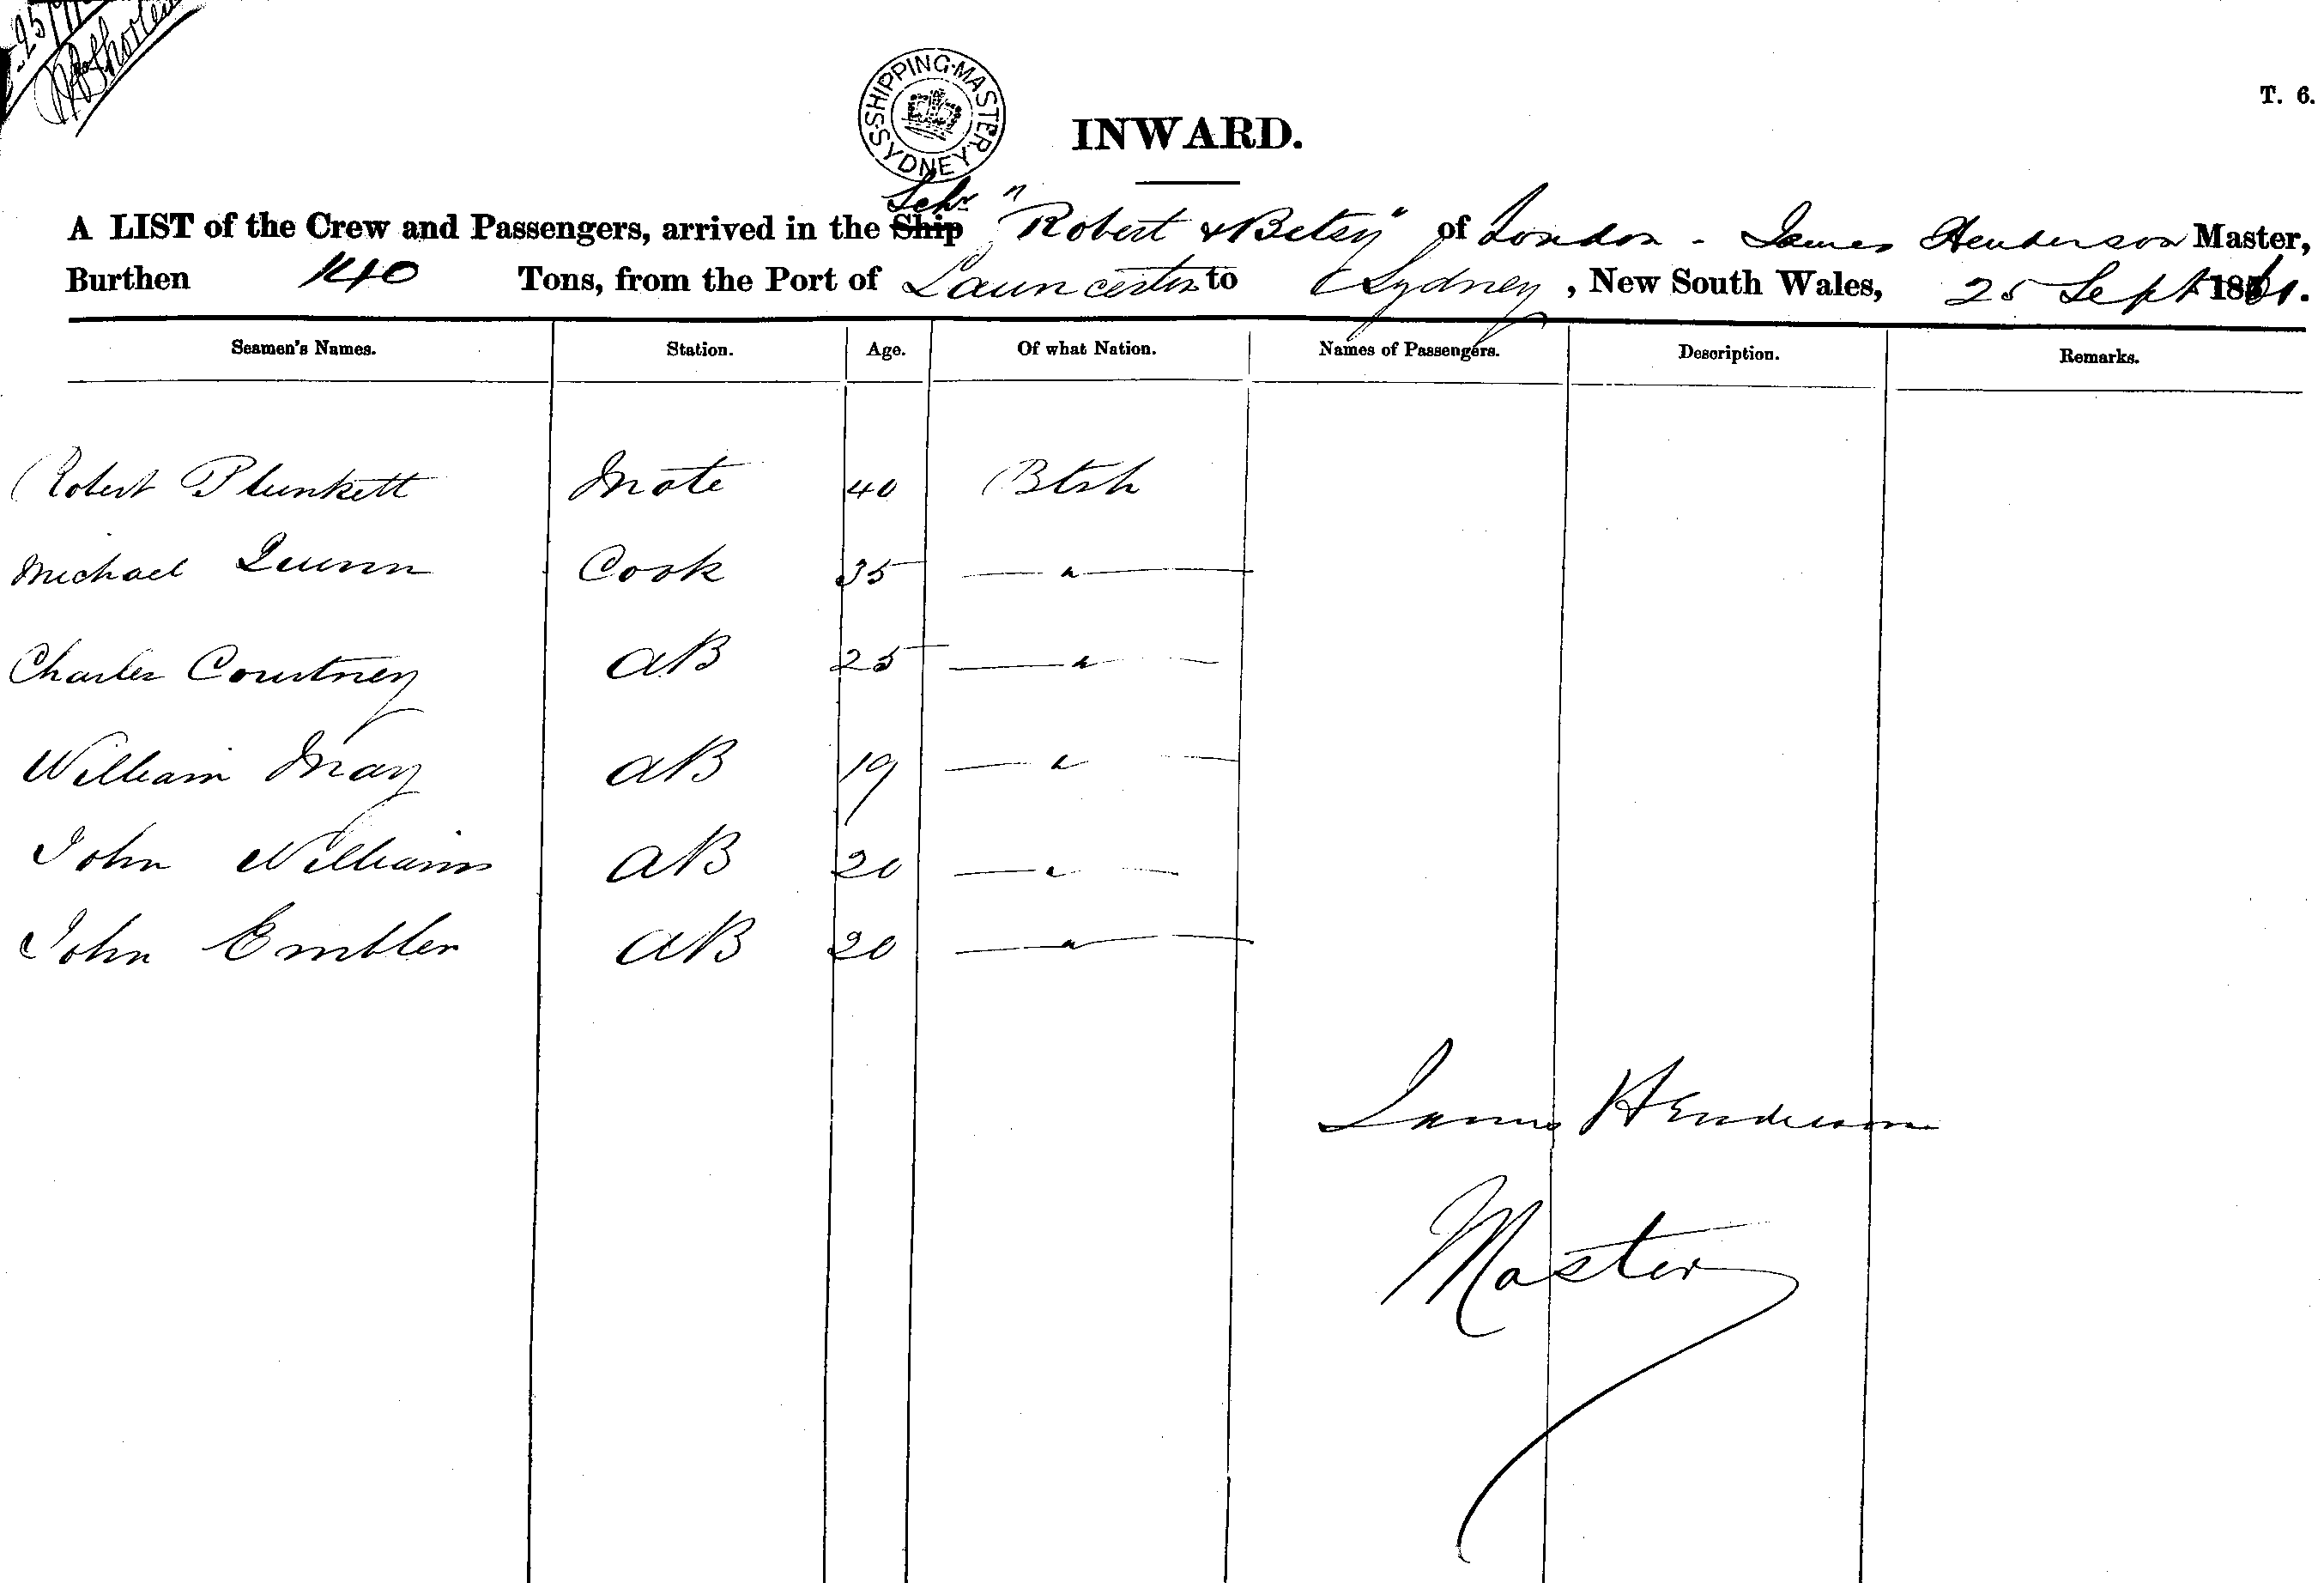 25
SHIPPING MASTER SYDNEY
T. 6.
INWARD.
Schr
A LIST of the Crew and Passengers, arrived in the Ship "Robert & Betsy" of London - James Henderson Master,
Burthen 140 Tons, from the Port of Launceston to Sydney, New South Wales, 25 Sept 1861.
Seamen's Names. Station. Age. Of what Nation. Names of Passengers. Description. Remarks.
Robert Plunkett Mate 40 Btsh
Michael Quinn Cook 35 — " —
Charles Courtney AB 25 — " —
William May AB 19 — " —
John Williams AB 20 — " —
John Embler AB 20 — " —
James Henderson
Master